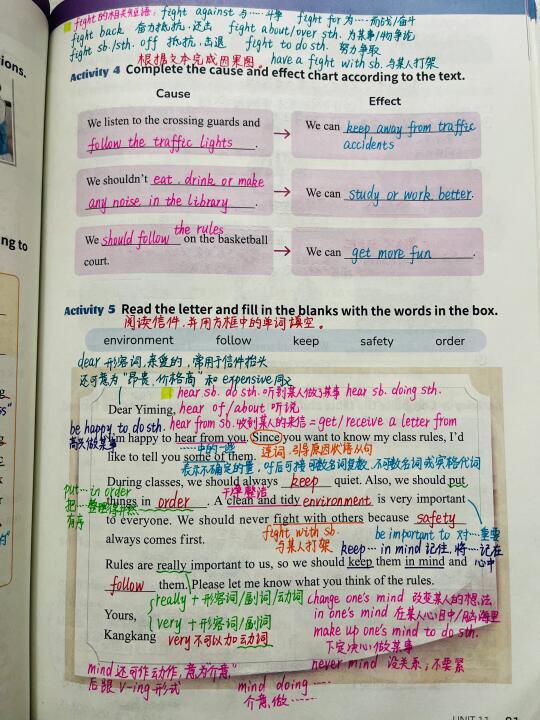 fight的相关短语: fight against 与……斗争 fight for 为……而战/奋斗
fight back 奋力抵抗,还击 fight about/over sth. 为某事/物争论
fight sb./sth. off 抵抗,击退 fight to do sth. 努力争取
根据文本完成因果图。 have a fight with sb. 与某人打架
Activity 4 Complete the cause and effect chart according to the text.
Cause Effect
We listen to the crossing guards and
follow the traffic lights.
We can keep away from traffic
accidents
We shouldn't eat, drink or make
any noise in the library.
We can study or work better.
We should follow the rules on the basketball
court.
We can get more fun.
Activity 5 Read the letter and fill in the blanks with the words in the box.
阅读信件,并用方框中的单词填空。
environment follow keep safety order
dear 形容词,亲爱的,常用于信件抬头
还可意为“昂贵,价格高”和 expensive 同义
hear sb. do sth. 听到某人做了某事 hear sb. doing sth.
Dear Yiming, hear of/about 听说
be happy to do sth. hear from sb. 收到某人的来信 = get/receive a letter from
高兴做某事
I'm happy to hear from you. Since you want to know my class rules, I'd
……中的一些 连词,引导原因状语从句
like to tell you some of them.
表示不确定的量,of后可接可数名词复数、不可数名词或宾格代词
During classes, we should always keep quiet. Also, we should put
put…in order
把…整理得井然有序
干净整洁
things in order. A clean and tidy environment is very important
to everyone. We should never fight with others because safety
always comes first.
fight with sb.
与某人打架
be important to 对…重要
keep…in mind 记住,将…记在心中
Rules are really important to us, so we should keep them in mind and
follow them. Please let me know what you think of the rules.
Yours,
Kangkang
really + 形容词/副词/动词
very + 形容词/副词
very 不可以加动词
change one's mind 改变某人的想法
in one's mind 在某人心目中/脑海里
make up one's mind to do sth.
下定决心做某事
never mind 没关系;不要紧
mind 还可作动作,意为“介意”
后跟 V-ing形式
mind doing……
介意做……
UNIT 11 81
ions.
ng to